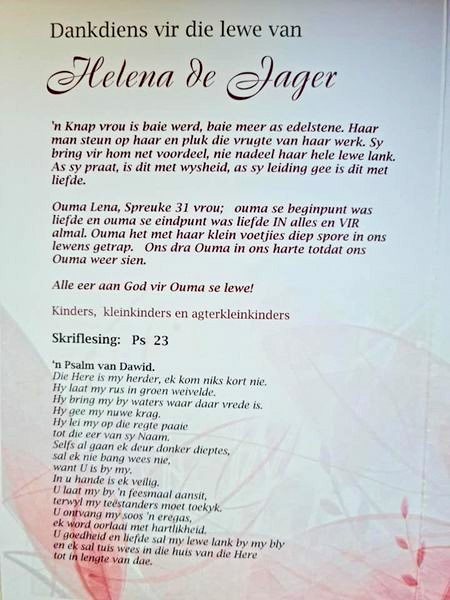 Dankdiens vir die lewe van
Helena de Jager
'n Knap vrou is baie werd, baie meer as edelstene. Haar
man steun op haar en pluk die vrugte van haar werk. Sy
bring vir hom net voordeel, nie nadeel haar hele lewe lank.
As sy praat, is dit met wysheid, as sy leiding gee is dit met
liefde.
Ouma Lena, Spreuke 31 vrou;   ouma se beginpunt was
liefde en ouma se eindpunt was liefde IN alles en VIR
almal. Ouma het met haar klein voetjies diep spore in ons
lewens getrap.   Ons dra Ouma in ons harte totdat ons
Ouma weer sien.
Alle eer aan God vir Ouma se lewe!
Kinders,  kleinkinders en agterkleinkinders
Skriflesing:   Ps  23
'n Psalm van Dawid.
Die Here is my herder, ek kom niks kort nie.
Hy laat my rus in groen weivelde.
Hy bring my by waters waar daar vrede is.
Hy gee my nuwe krag.
Hy lei my op die regte paaie
tot die eer van sy Naam.
Selfs al gaan ek deur donker dieptes,
sal ek nie bang wees nie,
want U is by my.
In u hande is ek veilig.
U laat my by 'n feesmaal aansit,
terwyl my teëstanders moet toekyk.
U ontvang my soos 'n eregas,
ek word oorlaai met hartlikheid.
U goedheid en liefde sal my lewe lank by my bly
en ek sal tuis wees in die huis van die Here
tot in lengte van dae.